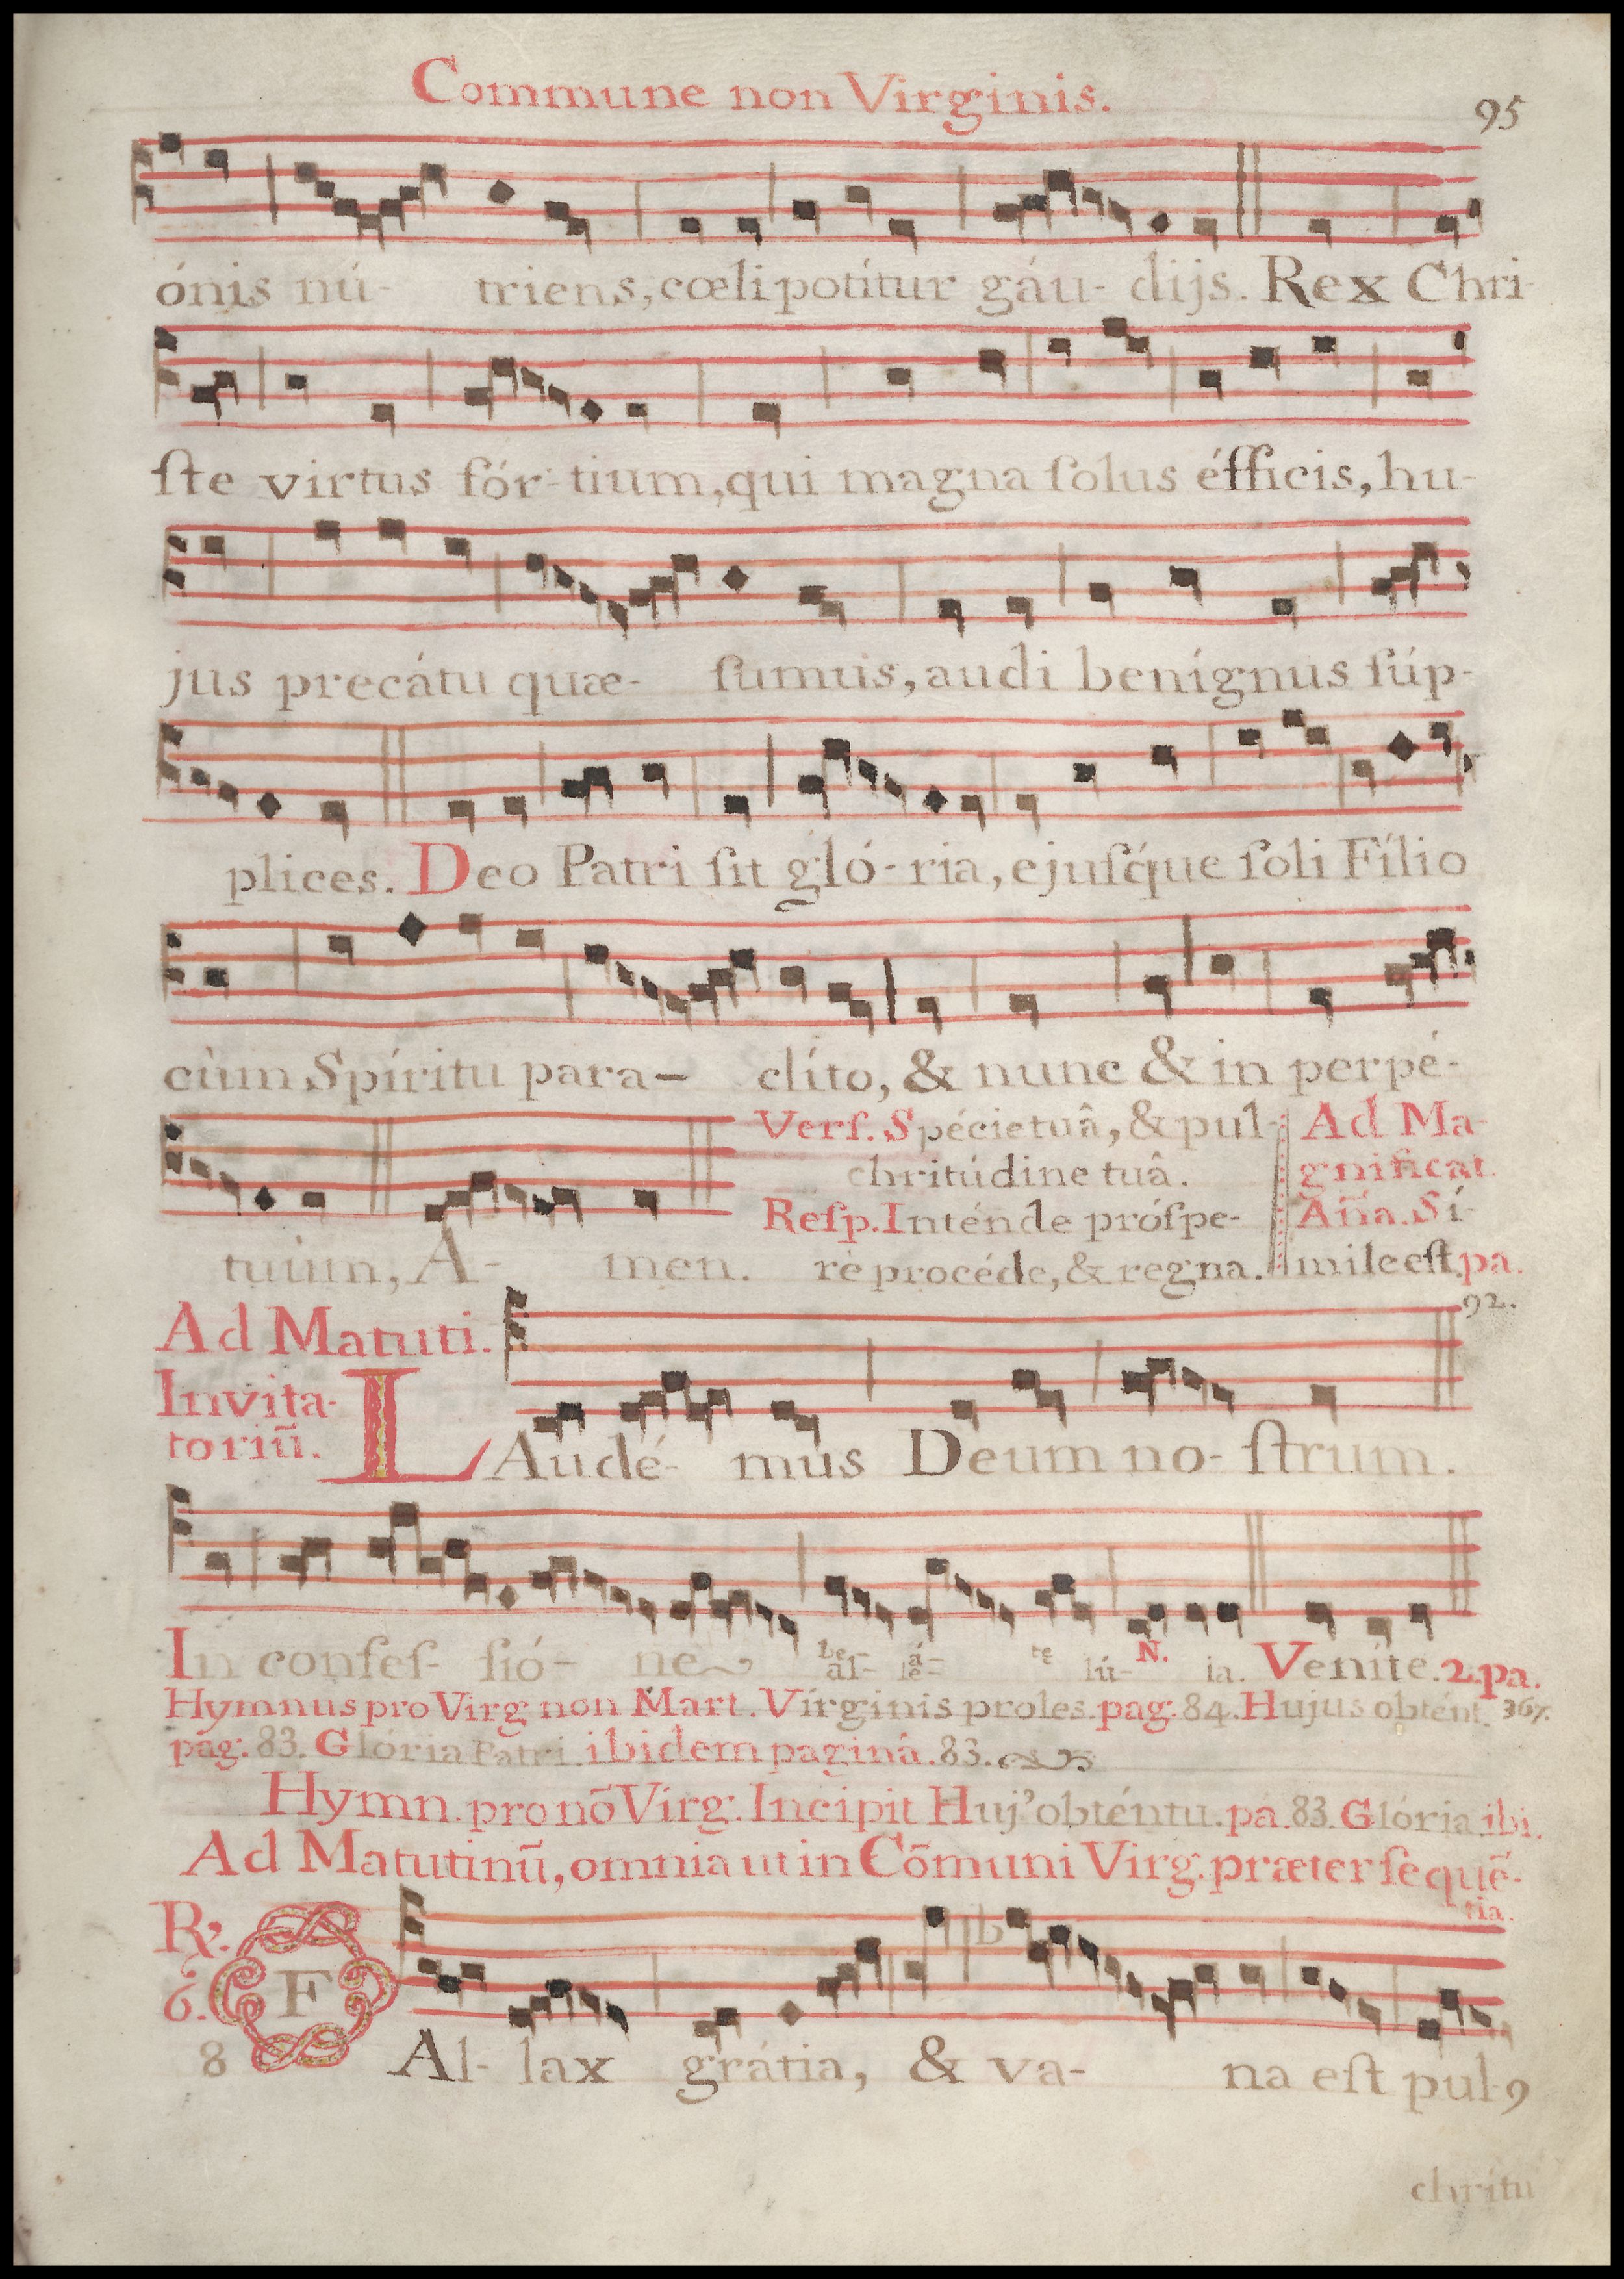 Commune non Virginis.
95
ónis nú- triens, cœli potítur gáu- dijs. Rex Chri-
ſte virtus fór- tium, qui magna ſolus éfficis, hu-
jus precátu quæ- ſumus, audi benígnus ſúp-
plices. Deo Patri ſit gló- ria, ejuſq́ue ſoli Fílio
cùm Spíritu para- clíto, & nunc & in perpé-
tuum, A- men.
Verſ. Spécie tuâ, & pul-
chritúdine tuâ.
Reſp. Inténde próſpe-
rè procéde, & regna.
Ad Ma-
gnificat.
Aña. Sí-
mile eſt. pa.
92.
Ad Matuti.
Invita-
toriũ.
LAudé- mus Deum no- ſtrum.
In confeſ- ſió- ne al- le- lú- N. ia. Veníte. 2. pa.
367.
Hymnus pro Virg non Mart. Vírginis proles. pag. 84. Hujus obtént.
pag. 83. Glória Patri. ibidem paginâ. 83.
Hymn. pro nõ Virg. Incipit Huj’ obténtu. pa. 83. Glória ibi.
Ad Matutinũ, omnia ut in Cõmuni Virg. præter ſequẽ-
tia.
℞.
6.
8
FAl- lax grátia, & va- na eſt pul-
chritu